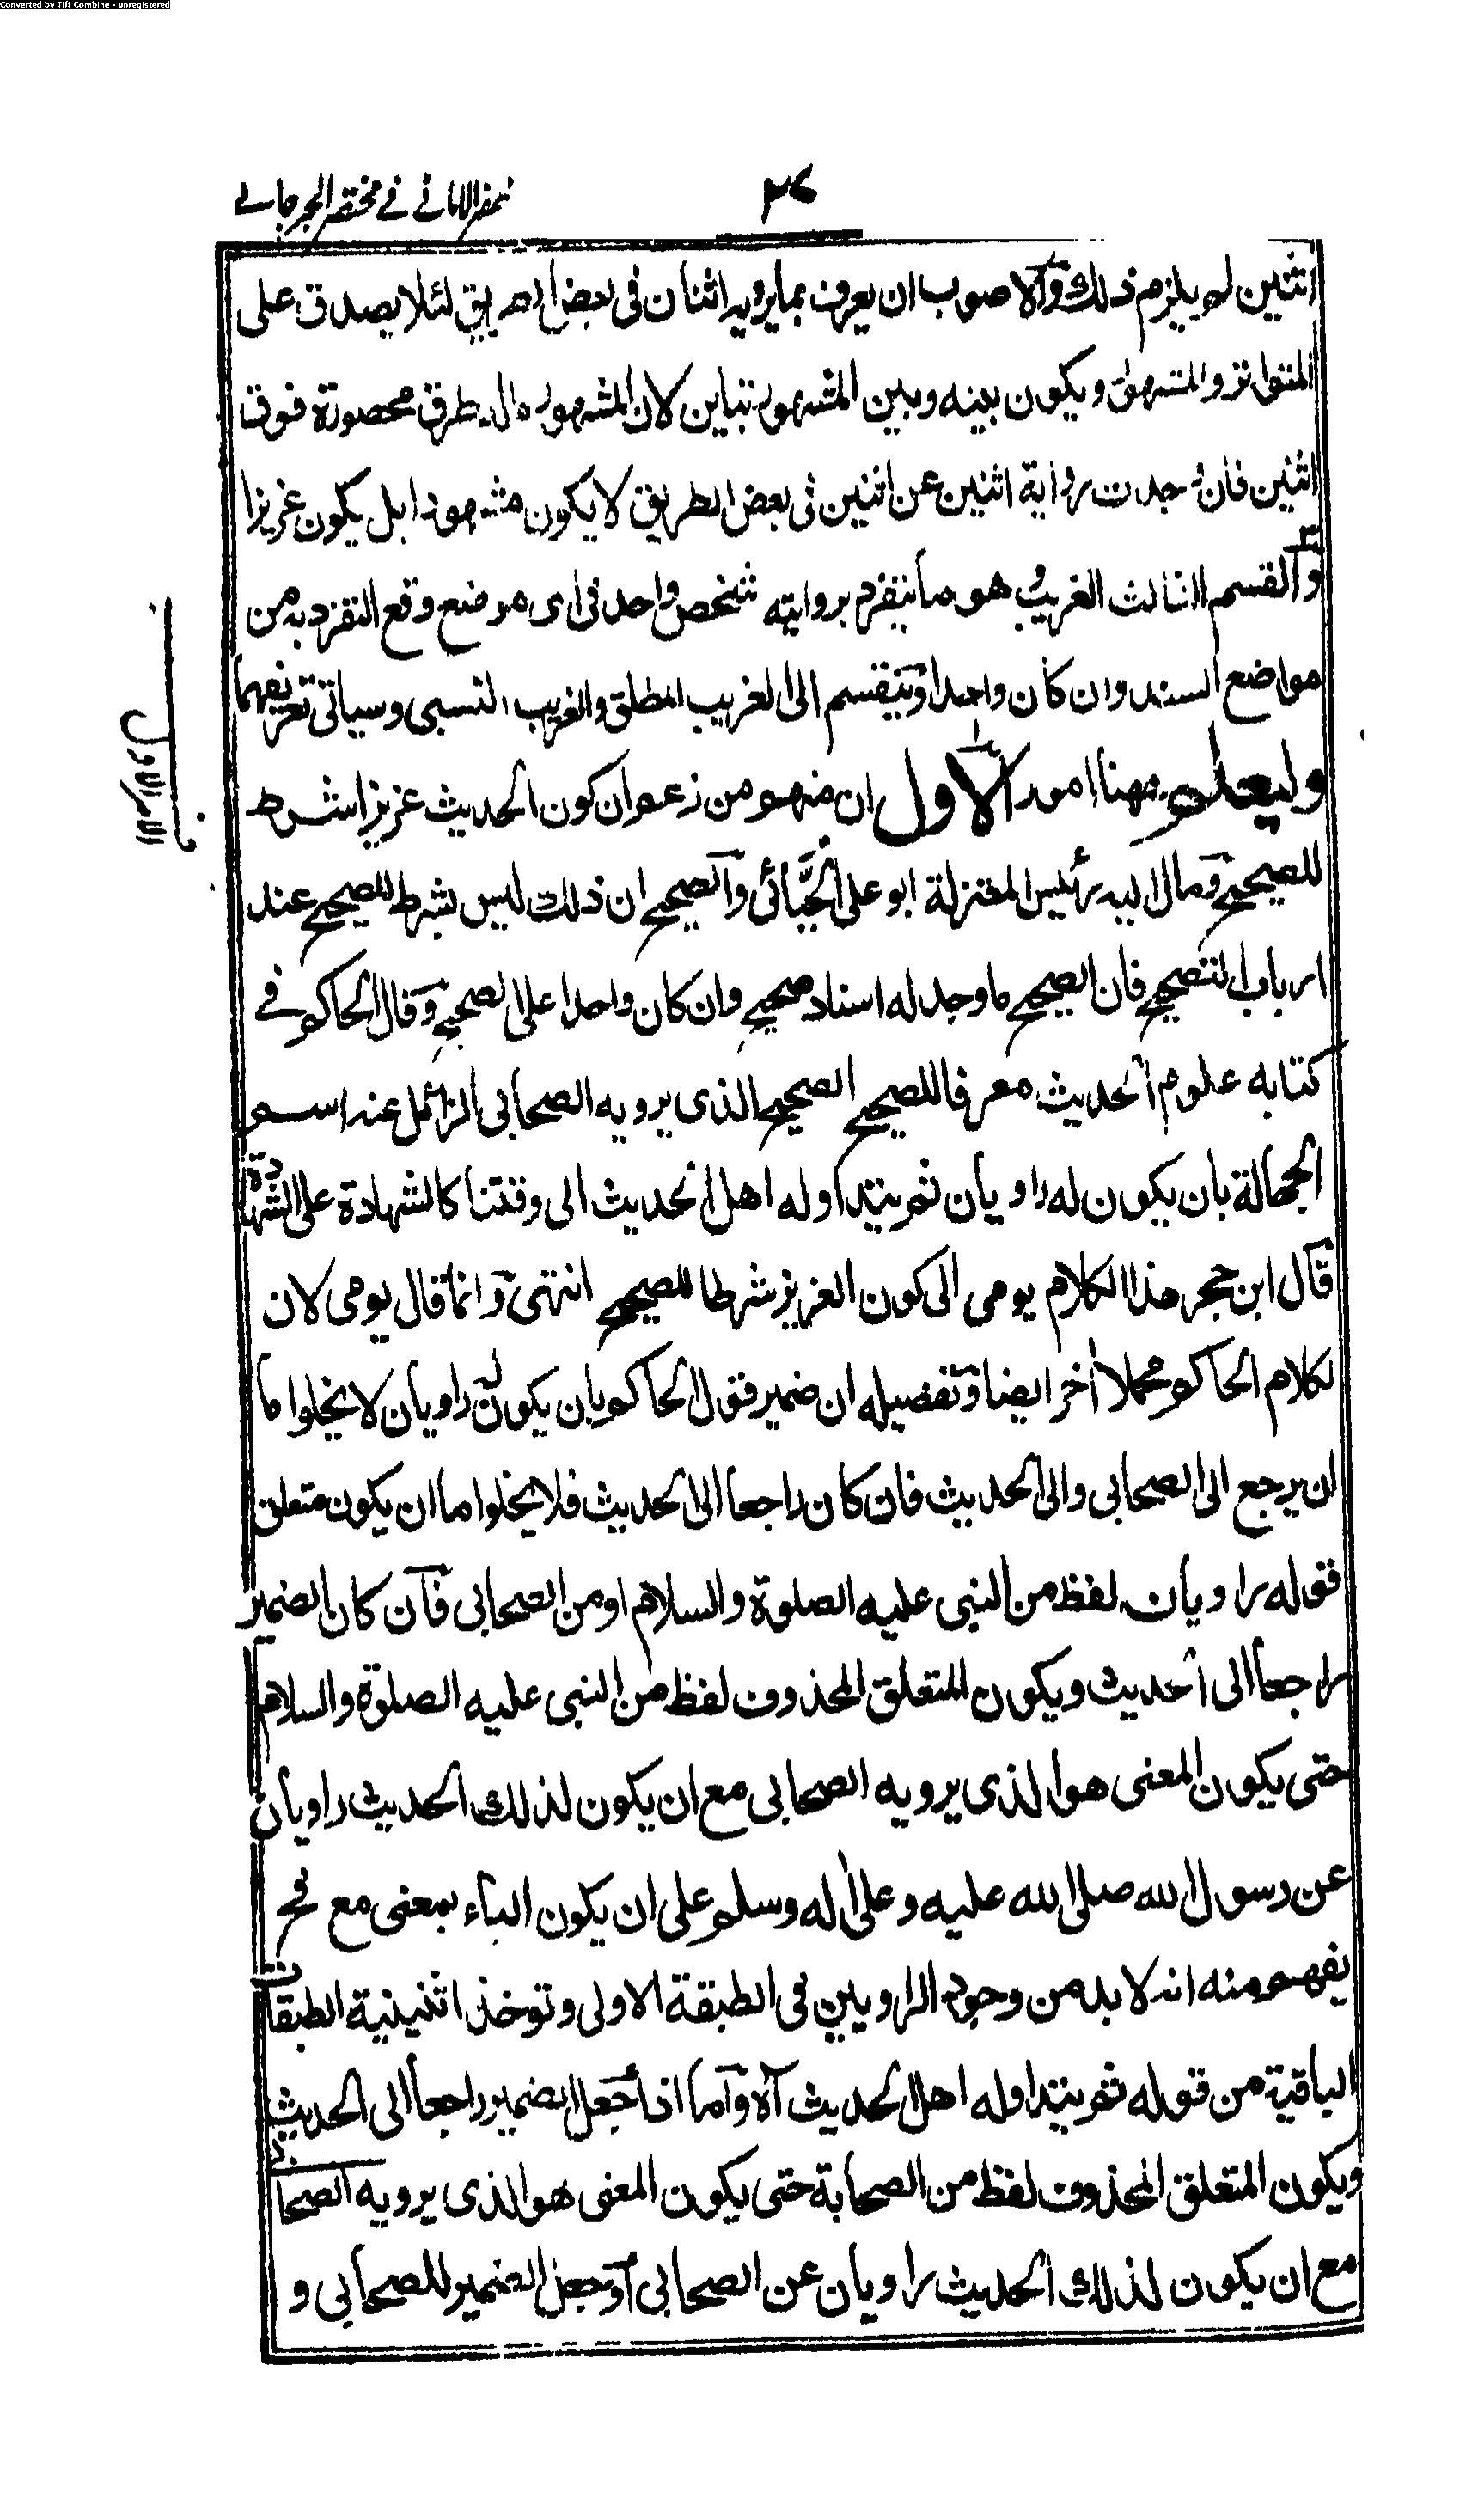 Converted by Tiff Combine - unregistered
ظفر الاماني في مختصر الجرجاني
اثنين لم يلزم ذلك والاصوب ان يعرف بما يرويه اثنان فى بعض الطريق لئلا يصدق على
المتواتر والمشهور ويكون بينه وبين المشهور تباين لان المشهور ماله طرق محصورة فوق
اثنين فان وجدت رواية اثنين عن اثنين فى بعض الطريق لا يكون مشهورا بل يكون عزيزا
والقسم الثالث الغريب هو ما ينفرد بروايته شخص واحد فى اى موضع وقع التفرد به من
مواضع السند وان كان واحدا وينقسم الى الغريب المطلق والغريب النسبى وسياتى تعريفهما
وليعلم ههنا امور الاول ان منهم من زعم ان كون الحديث عزيزا شرط
للصحيح ومال اليه رئيس المعتزلة ابو على الجبائى والصحيح ان ذلك ليس بشرط للصحيح عند
ارباب التصحيح فان الصحيح ما وجد له اسناد صحيح وان كان واحدا على الصحيح وقال الحاكم فے
كتابه علوم الحديث معرفا للصحيح الصحيح الذى يرويه الصحابى الزائل عنه اسم
الجهالة بان يكون له راويان ثم يتداوله اهل الحديث الى وقتنا كالشهادة على الشهادة
قال ابن حجر هذا الكلام يومى الى كون العزيز شرطا للصحيح انتهى وانما قال يومى لان
لكلام الحاكم محملا آخر ايضا وتفصيله ان ضمير قول الحاكم بان يكون له راويان لا يخلو اما
ان يرجع الى الصحابى والى الحديث فان كان راجعا الى الحديث فلا يخلوا ما ان يكون متعلق
قوله راويان لفظ من النبى عليه الصلوة والسلام او من الصحابى فان كان الضمير
راجعا الى الحديث ويكون المتعلق المحذوف لفظ من النبى عليه الصلوة والسلام
حتى يكون المعنى هو الذى يرويه الصحابى مع ان يكون لذلك الحديث راويان
عن رسول الله صلى الله عليه وعلى اله وسلم على ان يكون الباء بمعنى مع فح
يفهم منه انه لا بد من وجود الراويين فى الطبقة الاولى وتوخذ اثنينية الطبقات
الباقية من قوله ثم يتداوله اهل الحديث آه واما اذا جعل الضمير راجعا الى الحديث
ويكون المتعلق المحذوف لفظ من الصحابة حتى يكون المعنى هو الذى يرويه الصحابى
مع ان يكون لذلك الحديث راويان عن الصحابى او جعل الضمير للصحابى و